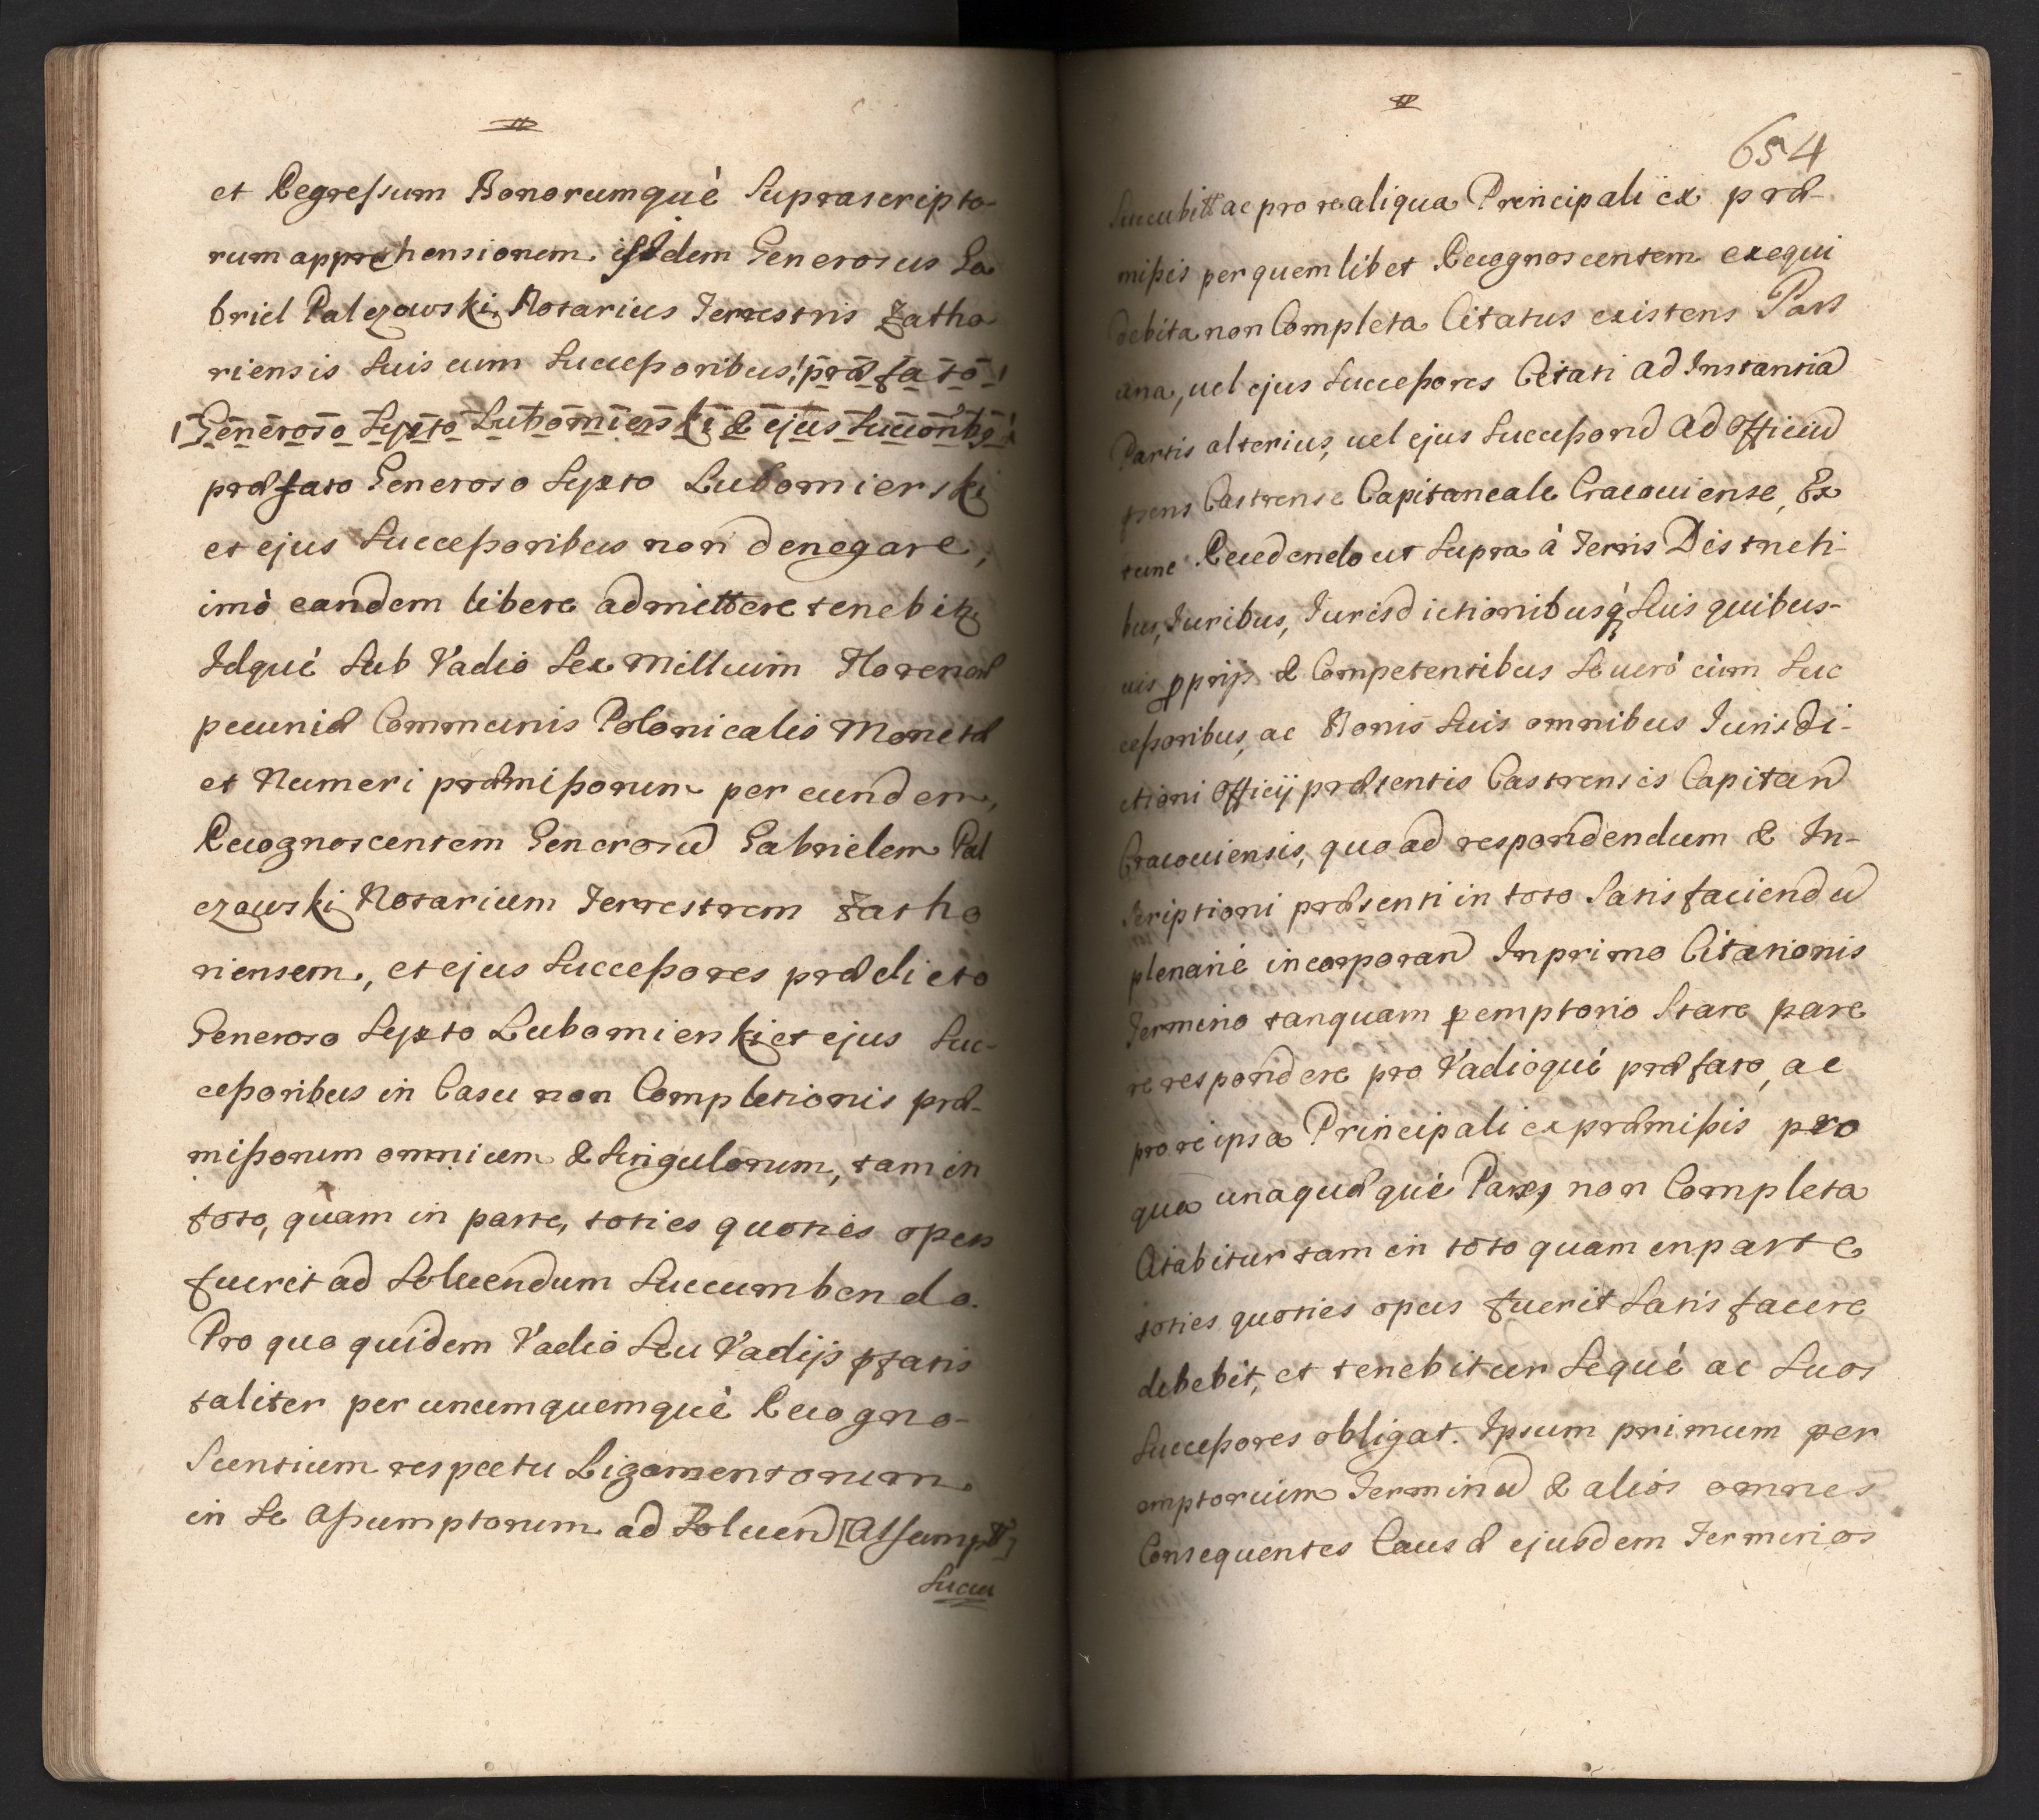 et Regressum Bonorumquè Suprascripto-
rum apprehensionem. isdem Generosus Ga
briel Palczowski, Notarius Terrestris Zatho
riensis Suis cum Successoribus, præfato
Generoso Sexto Lubomierski & ejus Succoribq
præfato Generoso Sexto Lubomierski
et ejus Successoribus non denegare,
imò eandem libere admittere tenebitq
Idquè Sub Vadio Sex Millium Floren
pecuniæ Communis Polonicalis Monetæ
et Numeri præmissorum per eundem,
Recognoscentem Generosu Gabrielem Pal
czowski Notarium Terrestrem Zatho
riensem, et ejus Successores prædicto
Generoso Sexto Lubomierski et ejus Suc-
cessoribus in Casu non Completionis præ-
missorum omnium & Singulorum, tam in
toto, quam in parte, toties quoties opus
fuerit ad Soluendum Succumbendo.
Pro quo quidem Vadio Seu Vadijs pfatis
taliter per unumquemquè Recogno-
Scentium respectu Ligamentorum
in Se Assumptorum ad Soluen [Assumptt]
Succu
654
Succubitt ac pro re aliqua Principali ex præ-
missis per quemlibet Recognoscentem exequi
debita non Completa Citatus existens Pars
una, uel ejus Successores Citati ad Instantia
Partis alterius, uel ejus Successoru ad Officiu
psens Castrense Capitaneale Cracouiense, Ex
tunc Recedendo ut Supra à Terris Districti-
bus, Iuribus, Iurisdictionibusq Suis quibus-
uis pprijs & Competentibus Se uerò cùm Suc
cessoribus, ac Bonis Suis omnibus Iurisdi-
ctioni Officij præsentis Castrensis Capitan
Cracouiensis, quo ad respondendum & In-
scriptioni præsenti in toto Satisfaciendu
plenariè incorporan In primo Citationis
Termino tanquam pemptorio Stare pare
re respondere pro Vadioquè præfato, ac
pro re ipsa Principali ex præmissis pro
qua unaquæquè Pars, non Completa
Citabitur tam in toto quam in parte
toties quoties opus fuerit Satisfacere
debebit, et tenebitur Sequè ac Suos
Successores obligat. Ipsum primum per
emptorium Terminu & alios omnes
Consequentes Causæ ejusdem Terminos